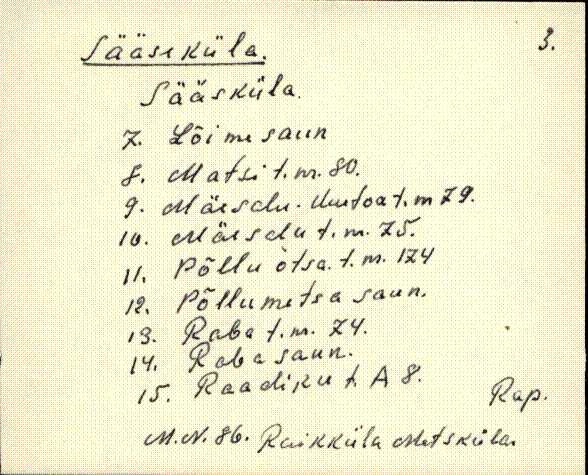 Sääseküla. 3.
Sääsküla.
7. Lõime saun
8. Matsi t. m. 80.
9. Mäesalu-Uustoa t. m 79.
10. Mäesalu t. m. 75.
11. Põllu otsa. t. m. 174
12. Põllumetsa saun.
13. Raba t. m. 74.
14. Raba saun.
15. Raadiku t. A 8.
Rap.
M. N. 86. Raikküla Metsküla.